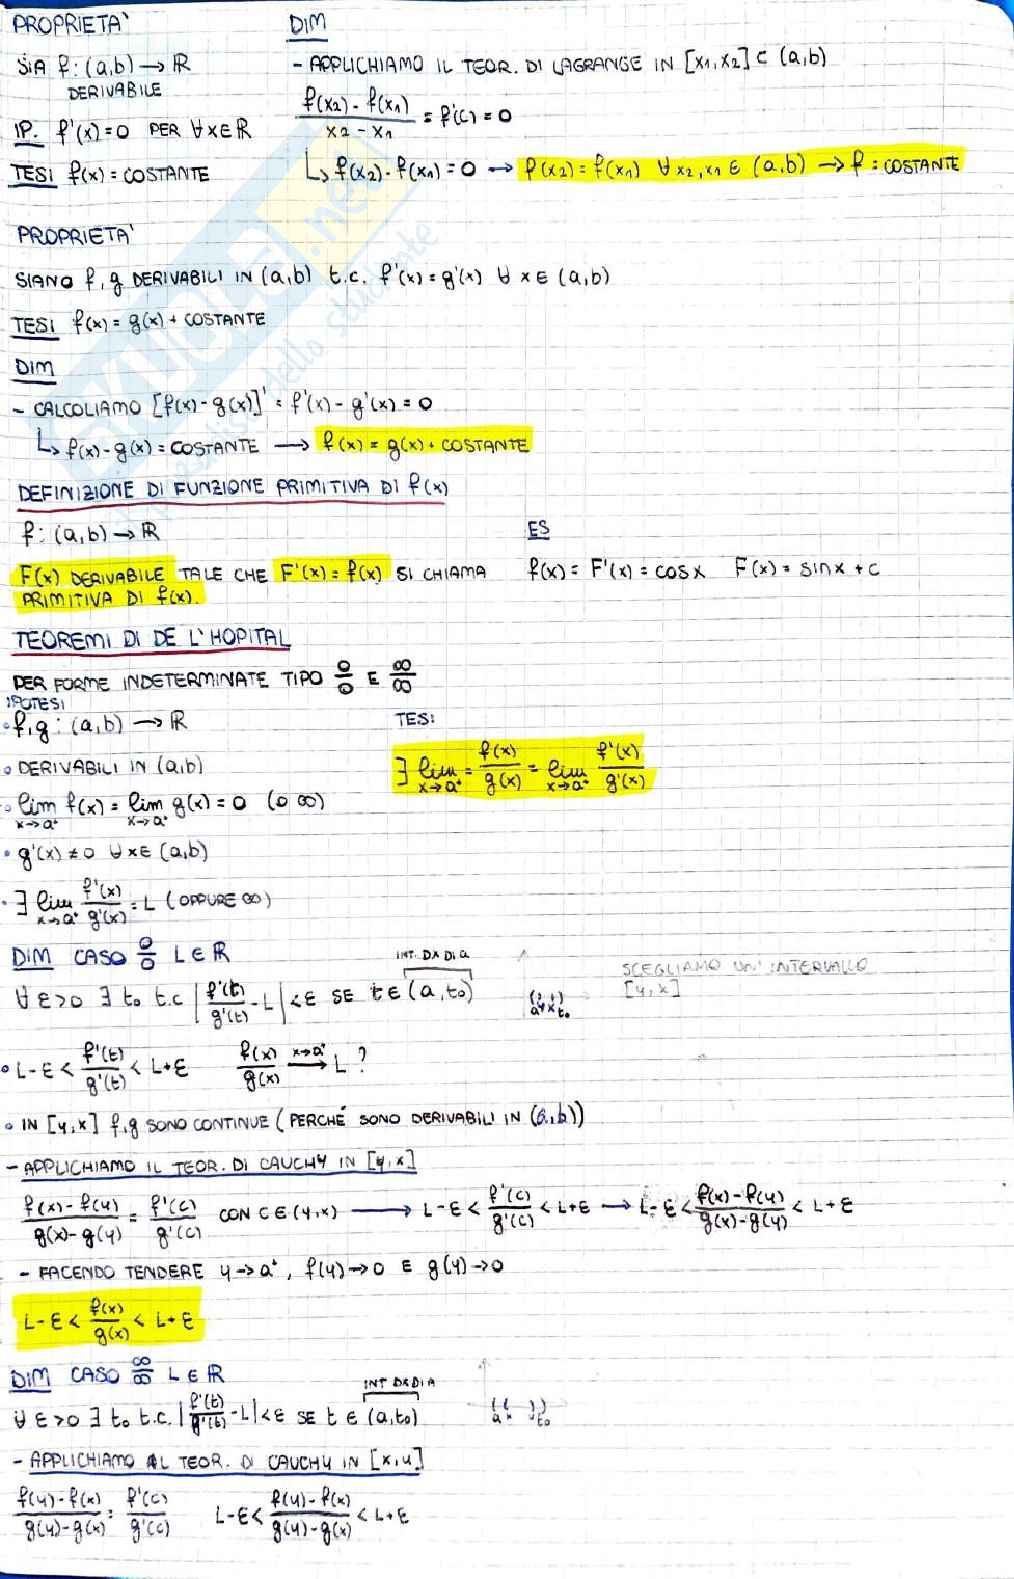 PROPRIETA'
SIA f: (a,b) → ℝ
DERIVABILE
IP. f'(x)=0 PER ∀x∈ℝ
TESI f(x)= COSTANTE
DIM
- APPLICHIAMO IL TEOR. DI LAGRANGE IN [x1,x2] ⊂ (a,b)
(f(x2)-f(x1))/(x2-x1) = f'(c) = 0
↳ f(x2)-f(x1)=0 → f(x2)=f(x1) ∀x2,x1 ∈ (a,b) → f = COSTANTE
PROPRIETA'
SIANO f,g DERIVABILI IN (a,b) t.c. f'(x)=g'(x) ∀ x∈ (a,b)
TESI f(x)= g(x)+ COSTANTE
DIM
- CALCOLIAMO [f(x)-g(x)]' = f'(x)-g'(x)=0
↳ f(x)-g(x)= COSTANTE → f(x)= g(x)+ COSTANTE
DEFINIZIONE DI FUNZIONE PRIMITIVA DI f(x)
f: (a,b) → ℝ
F(x) DERIVABILE TALE CHE F'(x)=f(x) SI CHIAMA
PRIMITIVA DI f(x).
ES
f(x)= F'(x)= cosx F(x)= sinx + c
TEOREMI DI DE L'HOPITAL
PER FORME INDETERMINATE TIPO 0/0 E ∞/∞
IPOTESI
• f,g: (a,b) → ℝ
• DERIVABILI IN (a,b)
• lim x→a⁺ f(x) = lim x→a⁺ g(x) = 0 (o ∞)
• g'(x) ≠0 ∀x∈ (a,b)
• ∃ lim x→a⁺ f'(x)/g'(x) = L (OPPURE ∞)
TESI
∃ lim x→a⁺ = f(x)/g(x) = lim x→a⁺ f'(x)/g'(x)
DIM CASO 0/0 L∈ℝ
INT. DX DI a
∀ε>0 ∃ to t.c |f'(t)/g'(t) - L| <ε SE t∈ (a,to)
a y x to
SCEGLIAMO UN' INTERVALLO
[y,x]
• L-ε < f'(t)/g'(t) < L+ε f(x)/g(x) x→a⁺ → L ?
• IN [y,x] f,g SONO CONTINUE (PERCHÉ SONO DERIVABILI IN (a,b))
- APPLICHIAMO IL TEOR. DI CAUCHY IN [y,x]
(f(x)-f(y))/(g(x)-g(y)) = f'(c)/g'(c) CON C∈(y,x) → L-ε < f'(c)/g'(c) < L+ε → L-ε < (f(x)-f(y))/(g(x)-g(y)) < L+ε
- FACENDO TENDERE y→a⁺, f(y)→0 E g(y)→0
L-ε < f(x)/g(x) < L+ε
DIM CASO ∞/∞ L∈ℝ
INT DX DI A
∀ε>0 ∃ to t.c. |f'(t)/g'(t) -L| <ε SE t∈ (a,to)
a x y to
- APPLICHIAMO IL TEOR. DI CAUCHY IN [x,y]
(f(y)-f(x))/(g(y)-g(x)) = f'(c)/g'(c) L-ε < (f(y)-f(x))/(g(y)-g(x)) < L+ε